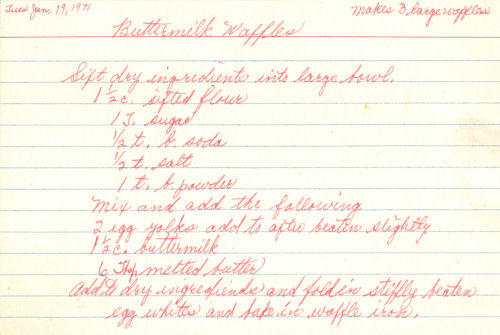 Tues Jan. 19, 1971
Makes 3 large waffles
Buttermilk Waffles
Sift dry ingredients into large bowl.
1 1/2 c. sifted flour
1 T. sugar
1/2 t. b. soda
1/2 t. salt
1 t. b. powder
Mix and add the following
2 egg yolks add to after beaten slightly
1 1/2 c. buttermilk
6 Tbsp melted butter
Add to dry ingrediends and fold in stiffly beaten
egg whites and bake in waffle iron.